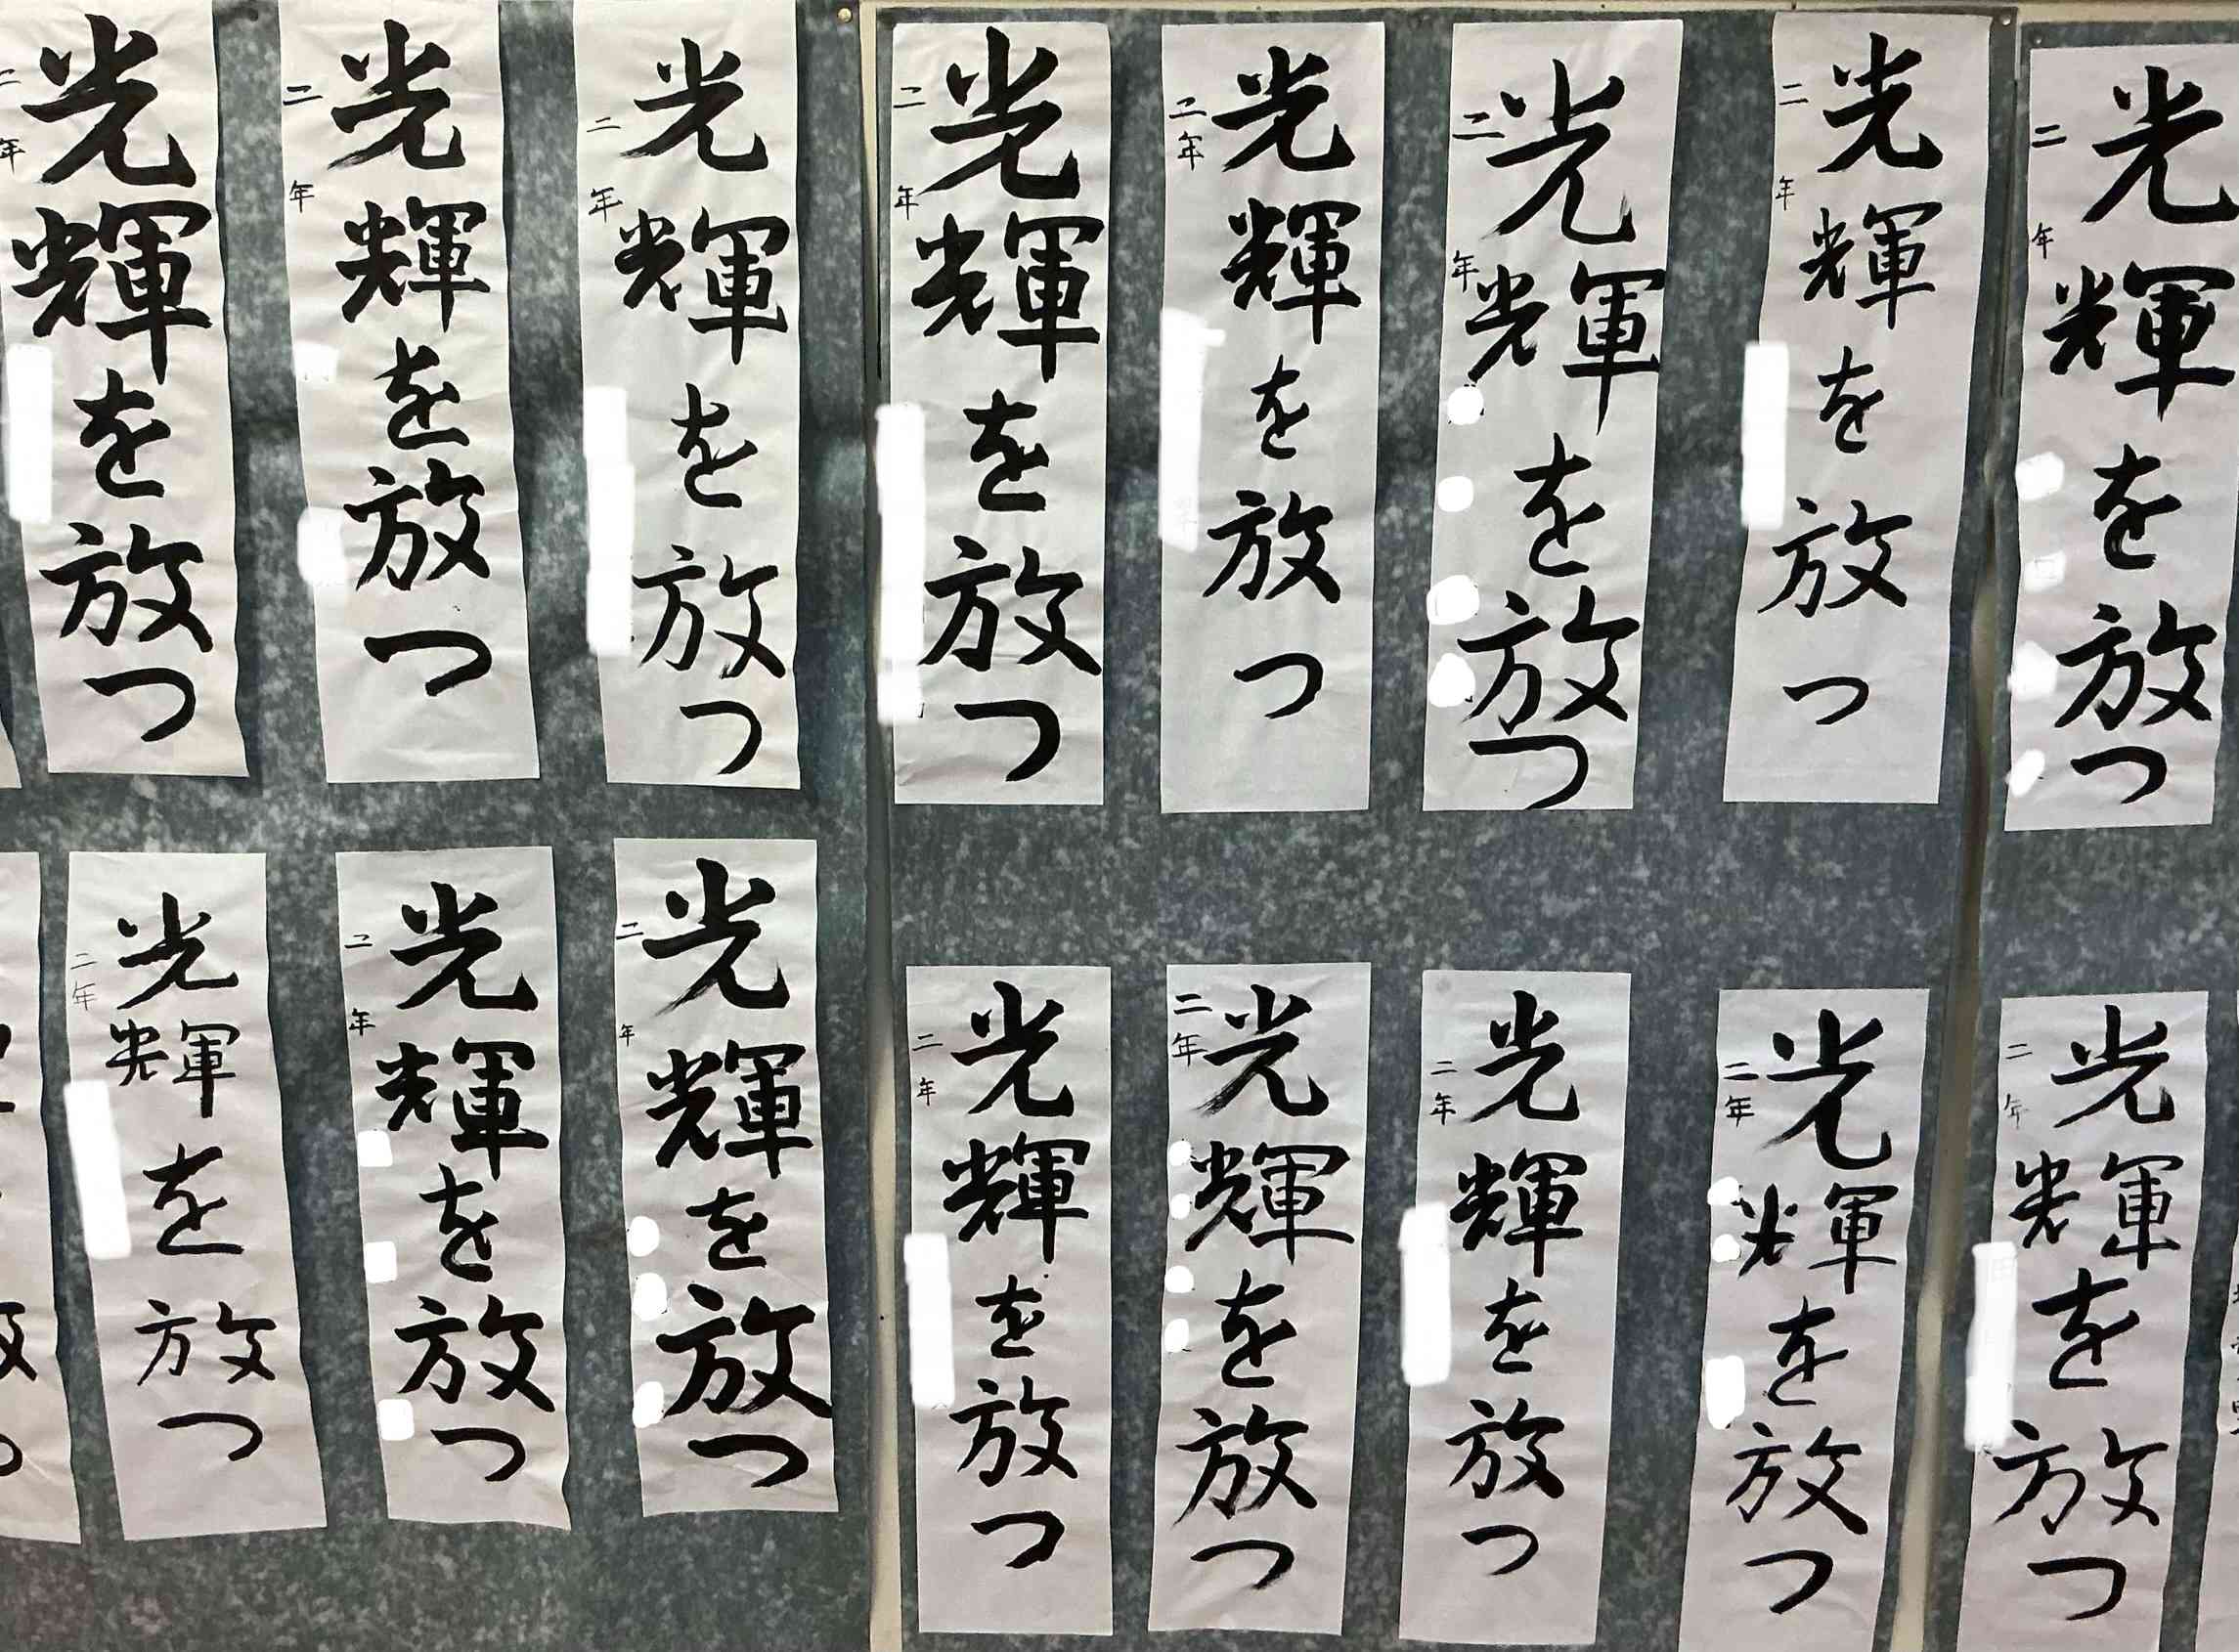 光輝を放つ
二年
光輝を放つ
二年
光輝を放つ
二年
光輝を放つ
二年
光輝を放つ
二年
光輝を放つ
二年
光輝を放つ
二年
光輝を放つ
二年
光輝を放つ
二年
光輝を放つ
二年
光輝を放つ
二年
光輝を放つ
二年
光輝を放つ
二年
光輝を放つ
二年
光輝を放つ
二年
光輝を放つ
二年